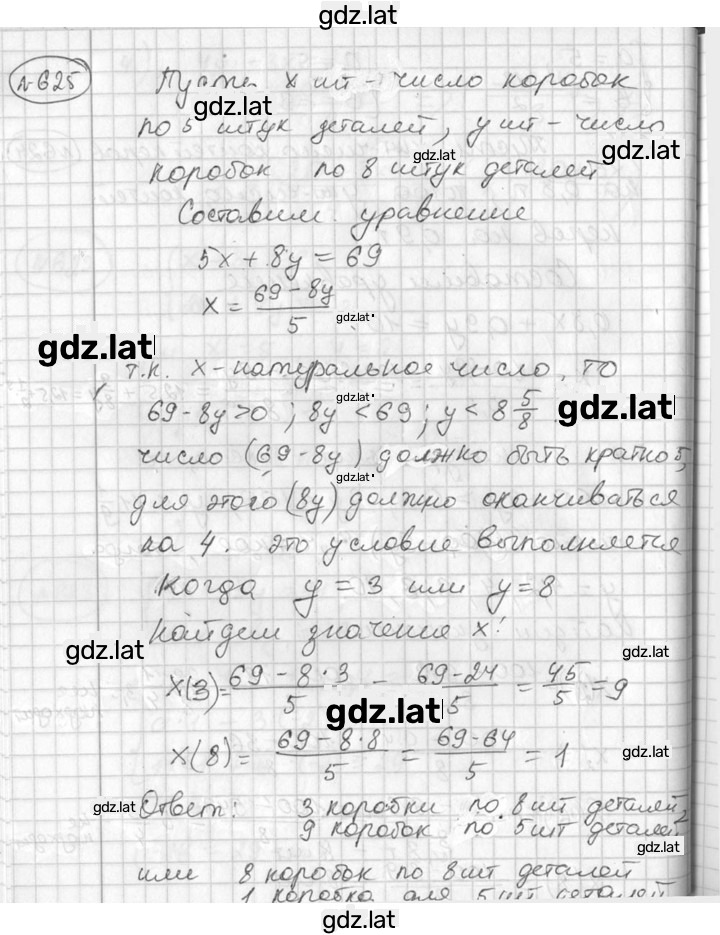 gdz.lat
№625
Пусть x шт - число коробок
gdz.lat
по 5 штук деталей, y шт - число
gdz.lat
gdz.lat
коробок по 8 штук деталей
Составим уравнение
5x + 8y = 69
x = (69 - 8y)/5
gdz.lat
gdz.lat
т.к. x - натуральное число, то
gdz.lat
69 - 8y > 0 ; 8y < 69 ; y < 8 5/8
gdz.lat
число (69 - 8y) должно быть кратно 5,
gdz.lat
для этого (8y) должно оканчиваться
на 4. это условие выполняется
когда y = 3 или y = 8
Найдем значение x:
gdz.lat
gdz.lat
x(3) = (69 - 8 · 3)/5 = (69 - 24)/5 = 45/5 = 9
gdz.lat
x(8) = (69 - 8 · 8)/5 = (69 - 64)/5 = 1
gdz.lat
gdz.lat
Ответ: 3 коробки по 8 шт деталей,
9 коробок по 5 шт деталей
gdz.lat
или 8 коробок по 8 шт деталей
1 коробка 5 шт деталей
gdz.lat